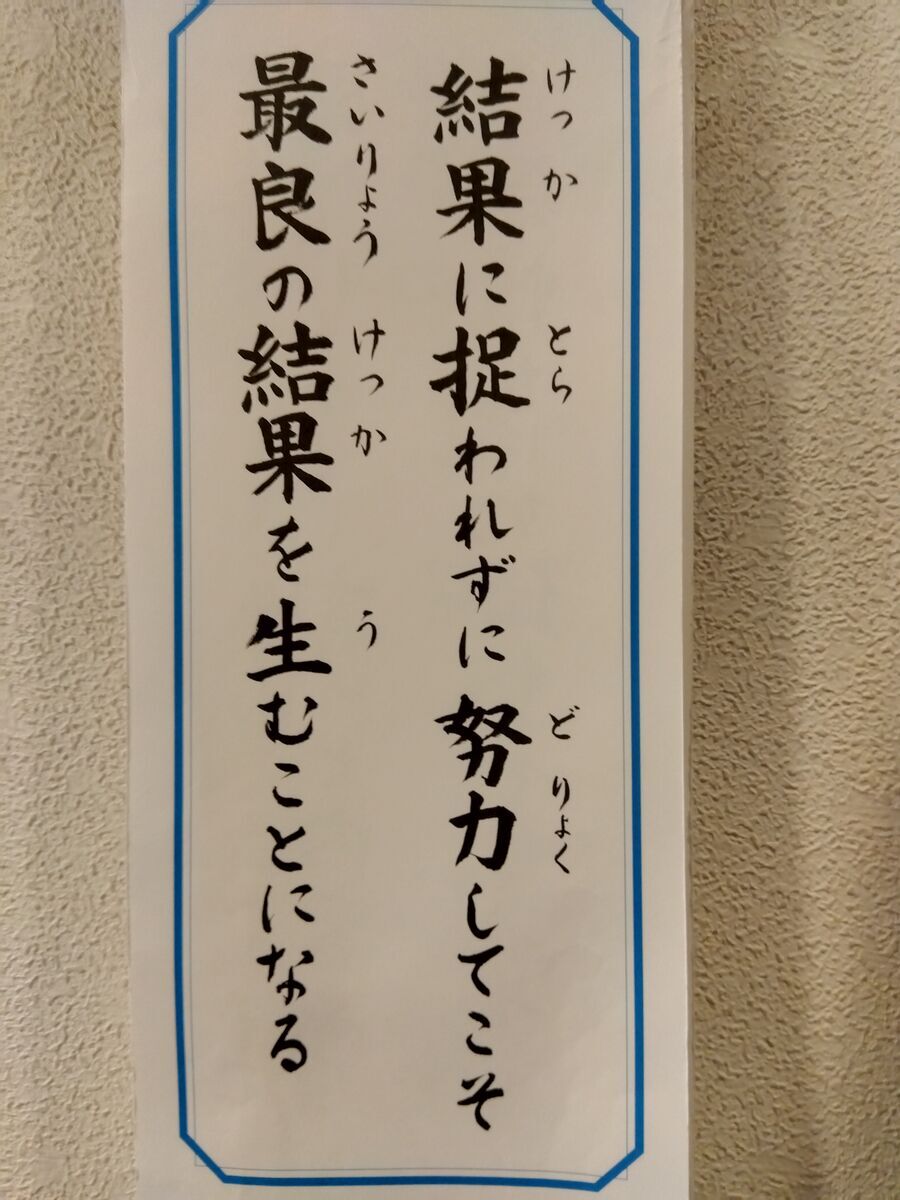 結果に捉われずに努力してこそ
けっか とら どりょく
最良の結果を生むことになる
さいりょう けっか う